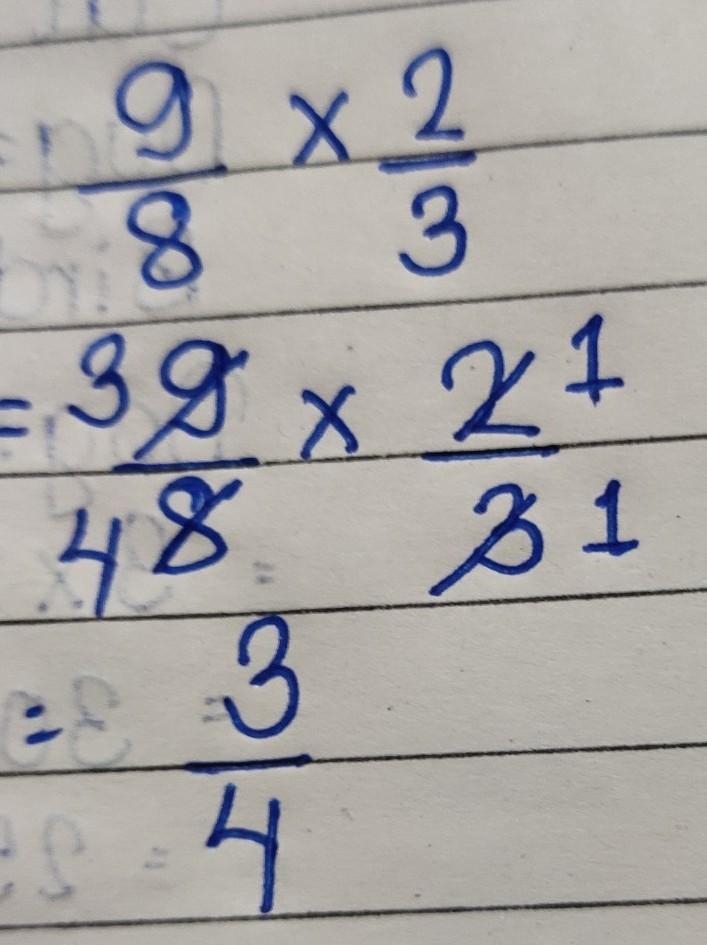 9/8 × 2/3
= 3 9/4 8 × 2 1/3 1
= 3/4